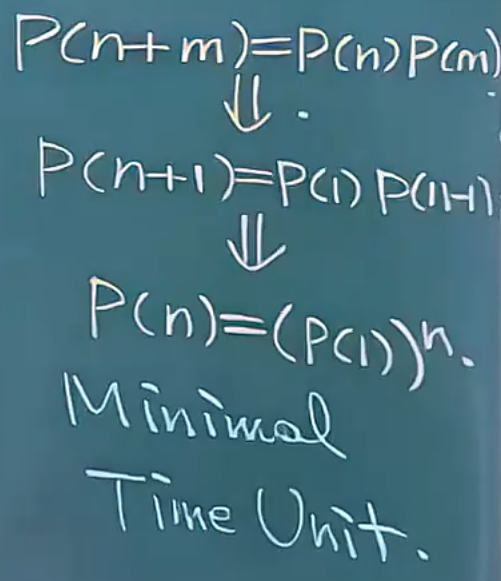 P(n+m)=P(n)P(m)
⇓
P(n+1)=P(1)P(n)
⇓
P(n)=(P(1))ⁿ.
Minimal
Time Unit.